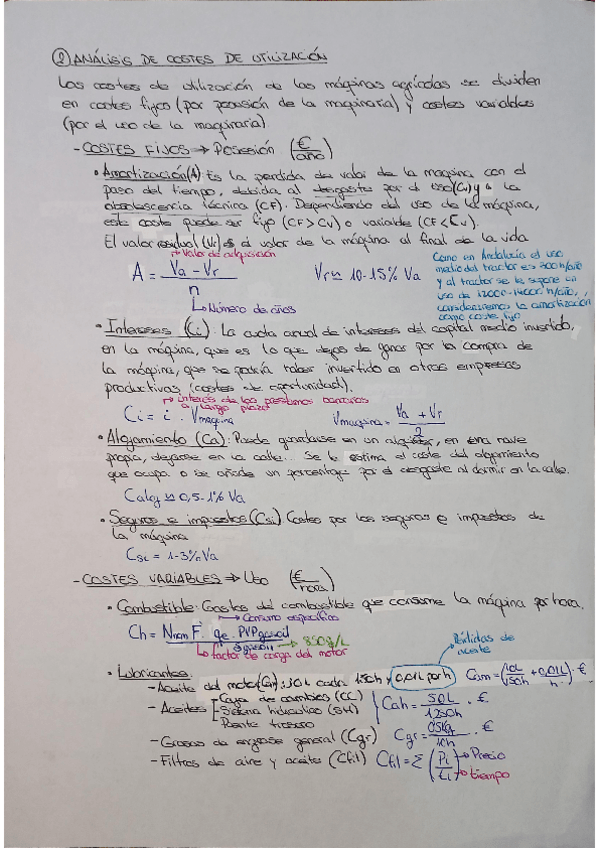 ② ANÁLISIS DE COSTES DE UTILIZACIÓN
Los costes de utilización de las máquinas agrícolas se dividen
en costes fijos (por posesión de la maquinaria) y costes variables
(por el uso de la maquinaria).
- COSTES FIJOS → Posesión (€/año)
• Amortización (A): Es la perdida de valor de la maquina con el
paso del tiempo, debida al desgaste por el uso (Cv) y a la
obsolescencia técnica (CF). Dependiendo del uso de la máquina,
este coste puede ser fijo (CF > Cv) o variables (CF < Cv).
El valor residual (Vr) es el valor de la máquina al final de la vida
→ Valor de adquisición
A = Va - Vr / n
Vr ≃ 10-15% Va
↳ Número de años
Como en Andalucía el uso
medio del tractor es 700 h/año
y al tractor se le supone un
uso de 1200-1400 h/año,
consideramos la amortización
como coste fijo
• Intereses (Ci): La cuota anual de intereses del capital medio invertido,
en la máquina, que es lo que dejas de ganar por la compra de
la máquina, que se podría haber invertido en otras empresas
productivas (costes de oportunidad).
→ interés de los préstamos bancarios
a largo plazo
Ci = i · Vmaquina
Vmaquina = Va + Vr / 2
• Alojamiento (Ca): Puede guardarse en un alquiler, en una nave
propia, dejarse en la calle... Se le estima el coste del alojamiento
que ocupa o se añade un porcentaje por el desgaste al dormir en la calle.
Caloj ≃ 0,5-1% Va
• Seguros e impuestos (Csi) Costes por los seguros e impuestos de
la máquina
Csi = 1-3% Va
- COSTES VARIABLES → Uso (€/hora)
• Combustible: Gastos del combustible que consume la máquina por hora.
→ Consumo específico
Ch = Nnom F. qe. PVPgasoil / gasoil → 850 g/L
↳ factor de carga del motor
Pérdidas de
aceite
• Lubricantes:
- Aceite del motor (Cam): 10L cada 150h y 0,01L por h
Cam = (10L/150h + 0,01L/h) · €
- Aceites
Caja de cambios (CC)
Sistema hidráulico (SH)
Puente trasero
Cah = 50L/1250h · €
- Grasas de engrase general (Cgr)
Cgr = 0,5Kg/10h · €
- Filtros de aire y aceite (Cfil)
Cfil = Σ (Pi/ti)
→ Precio
→ tiempo